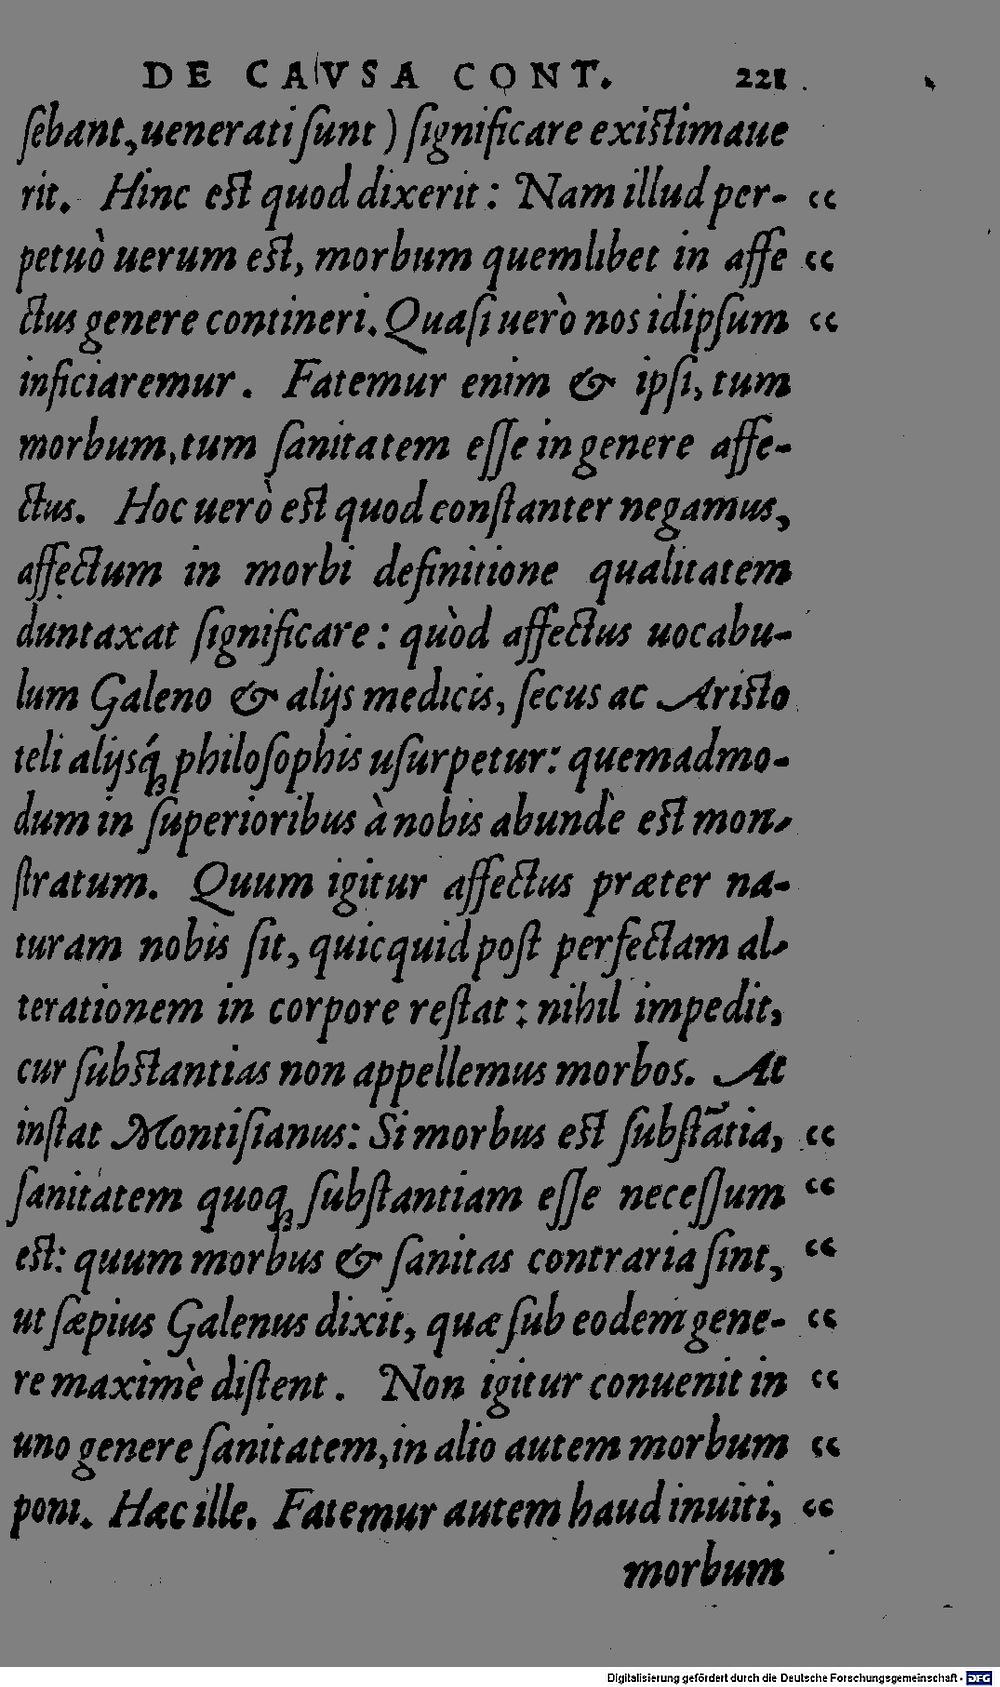 DE CAVSA CONT. 221
ſebant, uenerati ſunt) ſignificare exiſtimaue
rit. Hinc eſt quod dixerit: Nam illud per- “
petuò uerum eſt, morbum quemlibet in affe “
ctus genere contineri. Quaſi uerò nos idipſum “
inficiaremur. Fatemur enim & ipſi, tum
morbum, tum ſanitatem eſſe in genere affe-
ctus. Hoc uerò eſt quod conſtanter negamus,
affectum in morbi definitione qualitatem
duntaxat ſignificare: quòd affectus uocabu-
lum Galeno & alijs medicis, ſecus ac Ariſto
teli alijsq́ꝫ philoſophis uſurpetur: quemadmo-
dum in ſuperioribus à nobis abundè eſt mon-
ſtratum. Quum igitur affectus præter na-
turam nobis ſit, quicquid poſt perfectam al-
terationem in corpore reſtat: nihil impedit,
cur ſubſtantias non appellemus morbos. At
inſtat Montiſianus: Si morbus eſt ſubſtātia, “
ſanitatem quoqꝫ ſubſtantiam eſſe neceſſum “
eſt: quum morbus & ſanitas contraria ſint, “
ut ſæpius Galenus dixit, quæ ſub eodem gene- “
re maximè diſtent. Non igitur conuenit in “
uno genere ſanitatem, in alio autem morbum “
poni. Hæc ille. Fatemur autem haud inuiti, “
morbum
Digitalisierung gefördert durch die Deutsche Forschungsgemeinschaft - DFG